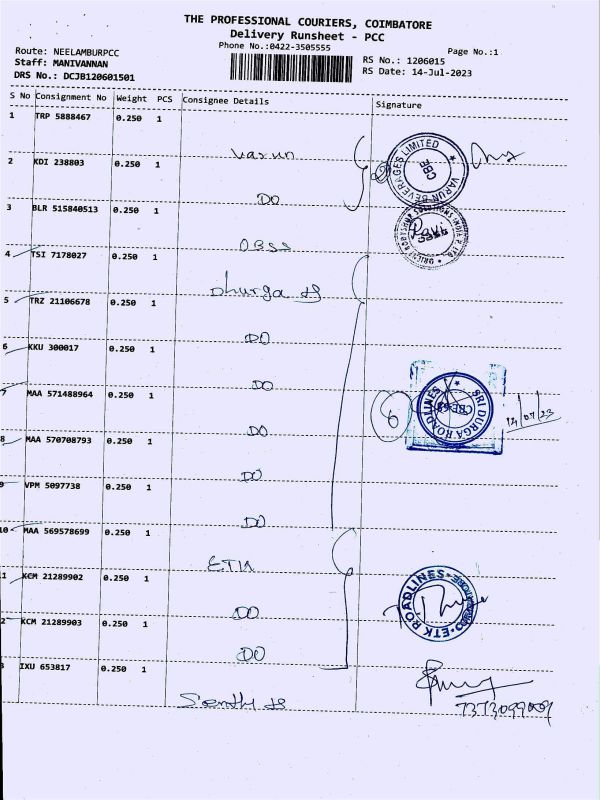 THE PROFESSIONAL COURIERS, COIMBATORE
Delivery Runsheet - PCC
Phone No.:0422-3505555
Page No.:1
Route: NEELAMBURPCC
RS No.: 1206015
Staff: MANIVANNAN
RS Date: 14-Jul-2023
DRS No.: DCJB120601501
S No Consignment No Weight PCS Consignee Details Signature
1 TRP 5888467 0.250 1
Varun
VARUN BEVERAGES LIMITED
CBE
2 KDI 238803 0.250 1
DO
3 BLR 515840513 0.250 1
OBSS
4 TSI 7178027 0.250 1
Dhurga
5 TRZ 21106678 0.250 1
DO
6 KKU 300017 0.250 1
DO
7 MAA 571488964 0.250 1
DO
SRI DURGA ROADLINES
14/07/23
8 MAA 570708793 0.250 1
DO
9 VPM 5097738 0.250 1
DO
10 MAA 569578699 0.250 1
ETK
1 KCM 21289902 0.250 1
DO
ETK ROADLINES
COIMBATORE
2 KCM 21289903 0.250 1
DO
3 IXU 653817 0.250 1
7373099009